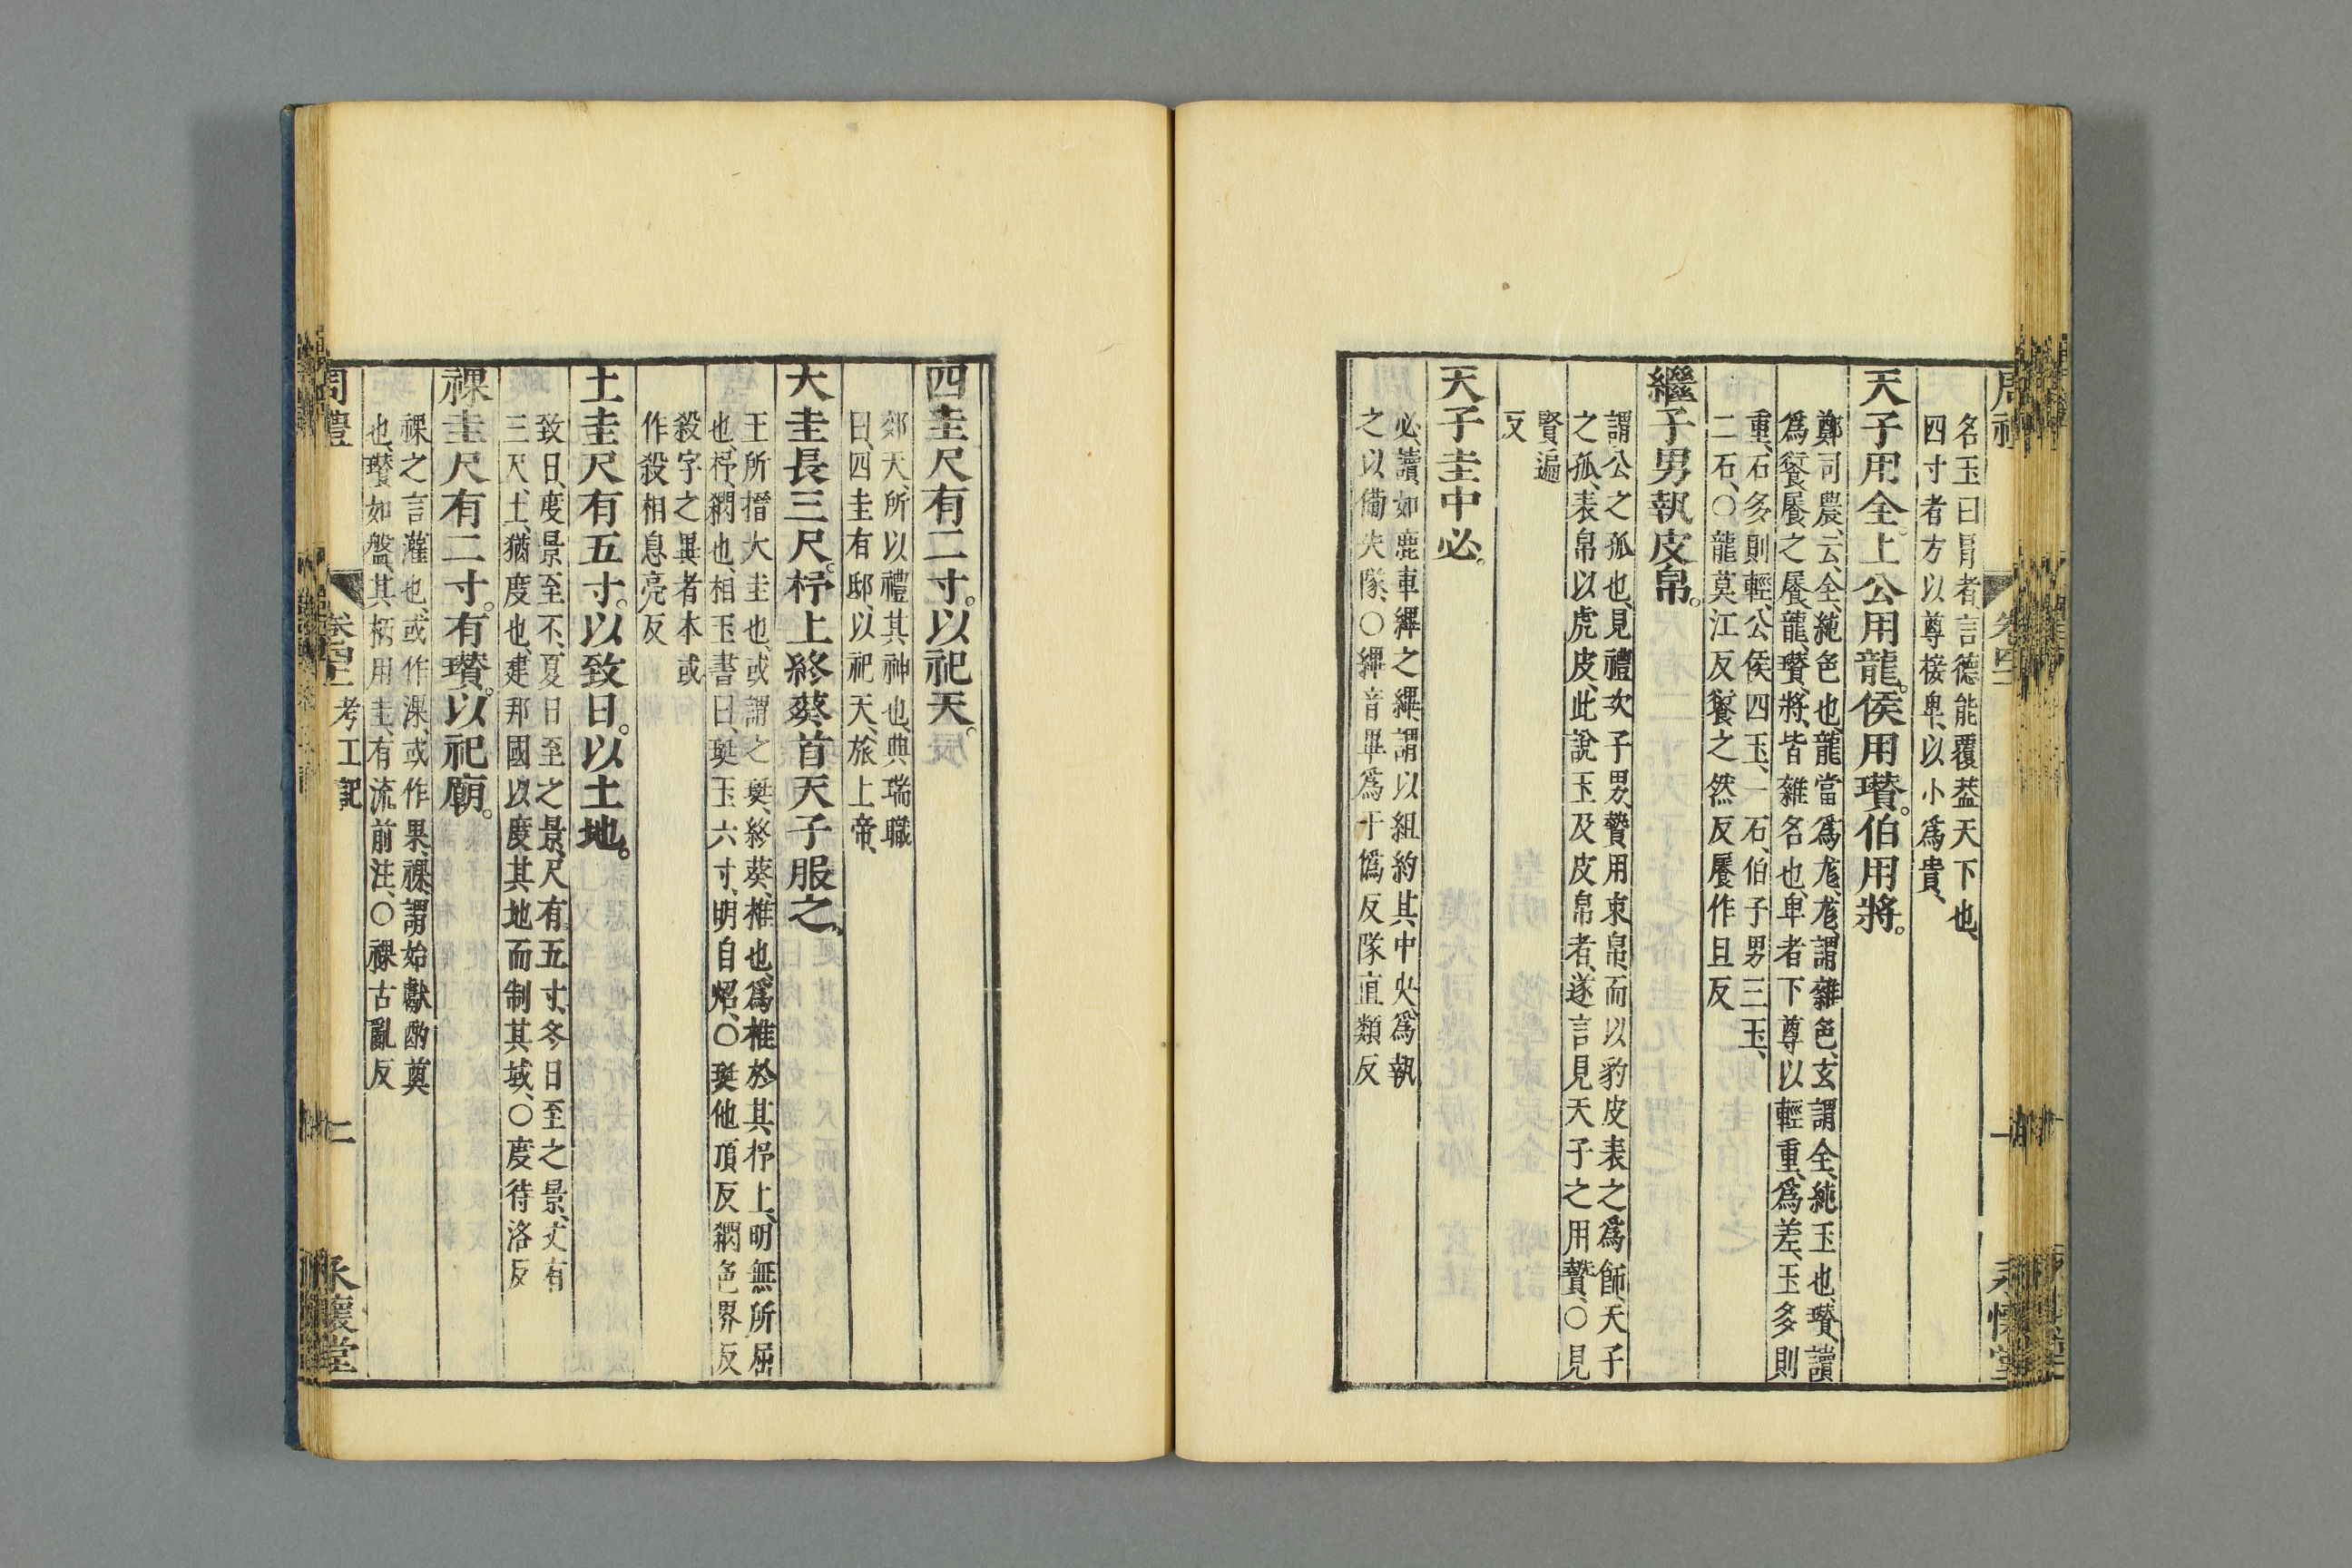 名玉曰冒者、言德能覆葢天下也、
四寸者方以尊接卑、以小爲貴、
天子用全。上公用龍。侯用瓚。伯用將。
鄭司農、云、全、純色也、龍當爲尨、尨、謂雜色、玄謂全、純玉也、瓚、讀
爲餐𩞁之𩞁、龍、瓚、將、皆雜名也、卑者下尊以輕重、爲差、玉多則
重、石多則輕、公侯四玉、一石、伯子男三玉、
二石、〇龍莫江反餐之然反𩞁作旦反
繼子男執皮帛。
謂公之孤也、見禮次子男、贄用束帛、而以豹皮表之爲飾、天子
之孤、表帛以虎皮、此說玉及皮帛者、遂言見天子之用贄、〇見
賢遍
反
天子圭中必。
必、讀、如鹿車縪之縪、謂以組約其中央、爲執
之以備失隊、〇縪音畢爲于僞反隊直類反
四圭尺有二寸。以祀天。
郊天、所以禮其神也、典瑞職
曰、四圭有邸、以祀天、旅上帝、
大圭長三尺。杼上終葵、首天子服之、
王所搢大圭也、或謂之珽、終葵、椎也、爲椎於其杼上、明無所屈
也、杼、𥻘也、相玉書曰、珽玉六寸、明自炤、〇珽他頂反𥻘色界反
殺字之異者本或
作殺相息亮反
土圭尺有五寸。以致日。以土地。
致日、度景至不、夏日至之景、尺有五寸、冬日至之景、丈有
三尺、土、猶度也、建邦國以度其地而制其域、〇度待洛反
祼圭尺有二寸。有瓚。以祀廟。
祼之言灌也、或作淉、或作果、祼、謂始獻酌奠
也、瓚如盤、其柄用圭、有流前注、〇祼古亂反
周禮
卷四十二
考工記
二
永懷堂